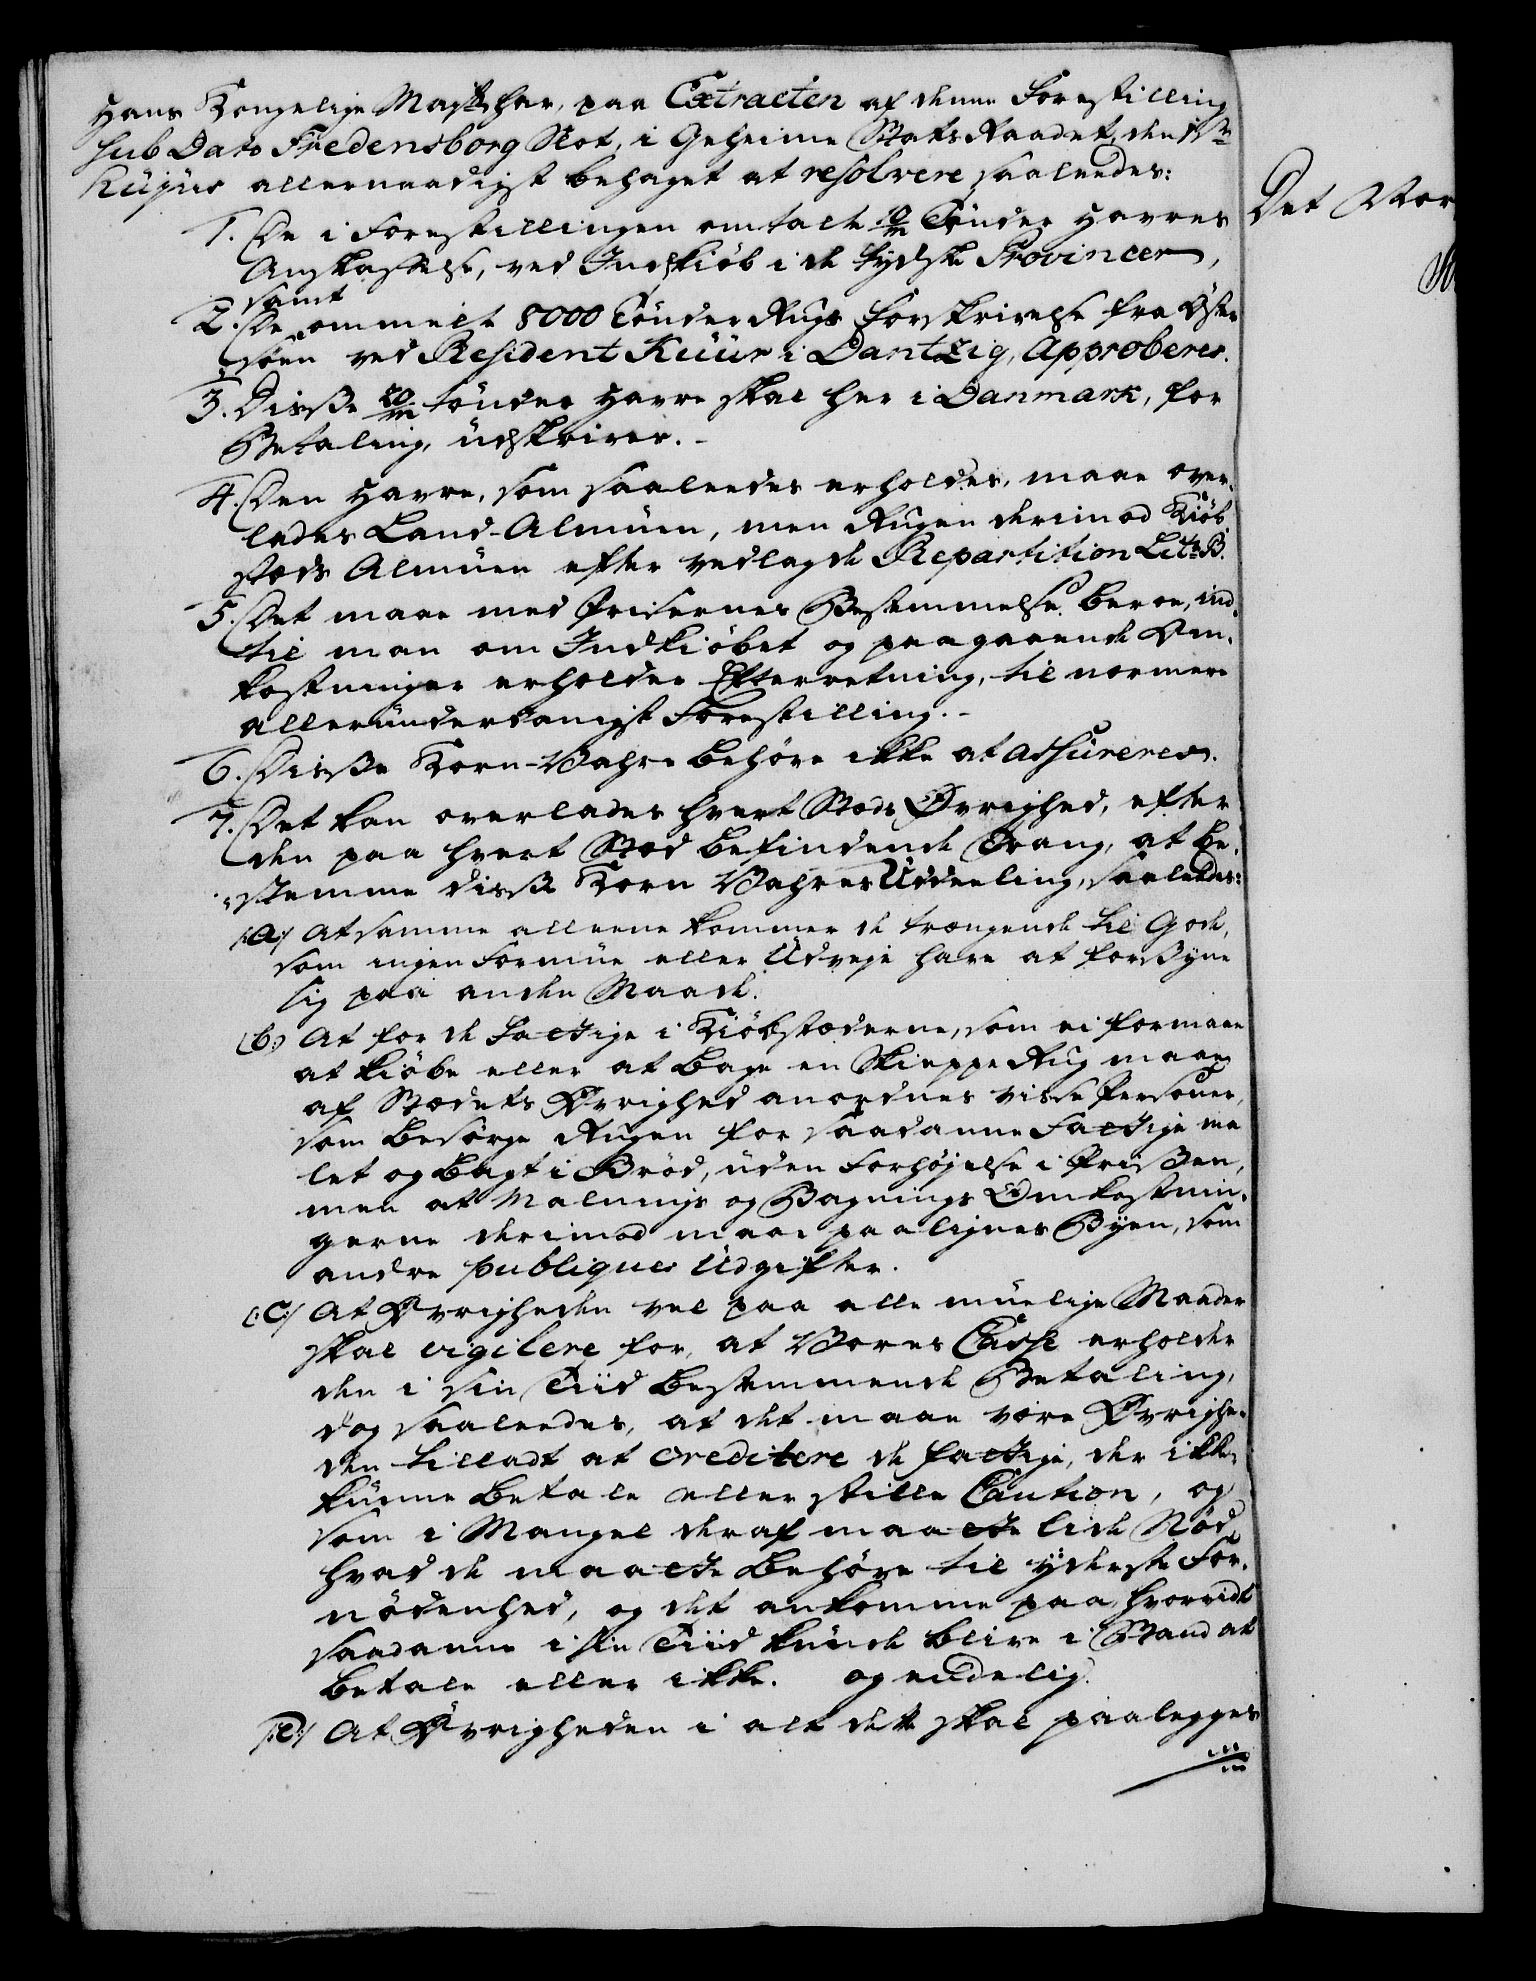 Hans Kongelige Maystt har, paa Extracten af denne Forestilling
sub Dato Fredensborg Slot, i Geheime Stats Raadet, den
hujus allernaadigst behaget at resolvere saaledes:
1. De i Forestillingen omtalte 10/m Tönder Havres
Anskaffelse, ved Indkiöb i de tydske Provincer,
samt
2. De ommelte 8000 Tönder Rugs forskrivelse fra Öster
söen ved Resident Kuür i Dantzig, Approberes.
3. Disse 20/m tönder Havre skal her i Danmark, for
Betaling, udskrives. -
4. Den Havre, som saaleedes erholdes, maae over-
lades Land-Almuen, men Rugen derimod Kiöb-
stæds Almuen efter vedlagde Repartition Litr. B.
5. Det maae med Prisernes Bestemmelse beroe, ind-
til man om Indkiöbet og paagaaende Om-
kostninger erholder Efterretning, til nærmere
allerunderdanigst Forestilling. -
6. Disse Korn-Vahre behöve ikke at assureres.
7. Det kan overlades hvert Stæds Øvrighed, efter
den paa hvert Stæd befindende Trang, at be-
stemme disse Korn Vahres Uddeeling, saaledes:
/:a:/ At samme alleene kommer de trængende til Gode,
som ingen Formue eller Udveje have at forsyne
sig paa anden Maade.
/:b:/ At for de Fattige i Kiöbstæderne, som ei formaae
at kiöbe eller at bage en Skieppe Rug maae
af Stædets Øvrighed anordnes visse Personer,
som besörge Rugen for saadanne Fattige ma-
let og bagt i Bröd, uden Forhöjelse i Prisen,
men at Malnings og Bagnings Omkostnin-
gerne derimod maae paalignes Byen, som
andre publique Udgifter.
/:c:/ At Øvrigheden vel paa alle muelige Maader
skal vigilere for, at Vores Casse erholder
den i sin Tiid bestemmende Betaling,
dog saaleedes, at det maae være Øvrighe-
den tilladt at creditere de fattige, der ikke
kunne betale eller stille Caution, og
som i Mangel deraf maatte lide Nöd,
hvad de maatte behöve til yderste For-
nödenhed, og det ankomme paa, hvorvidt
saadanne i sin Tiid kunde blive i Stand at
betale eller ikke. og endelig.
/:d:/ At Øvrigheden i alt dette skal paalegges
Det